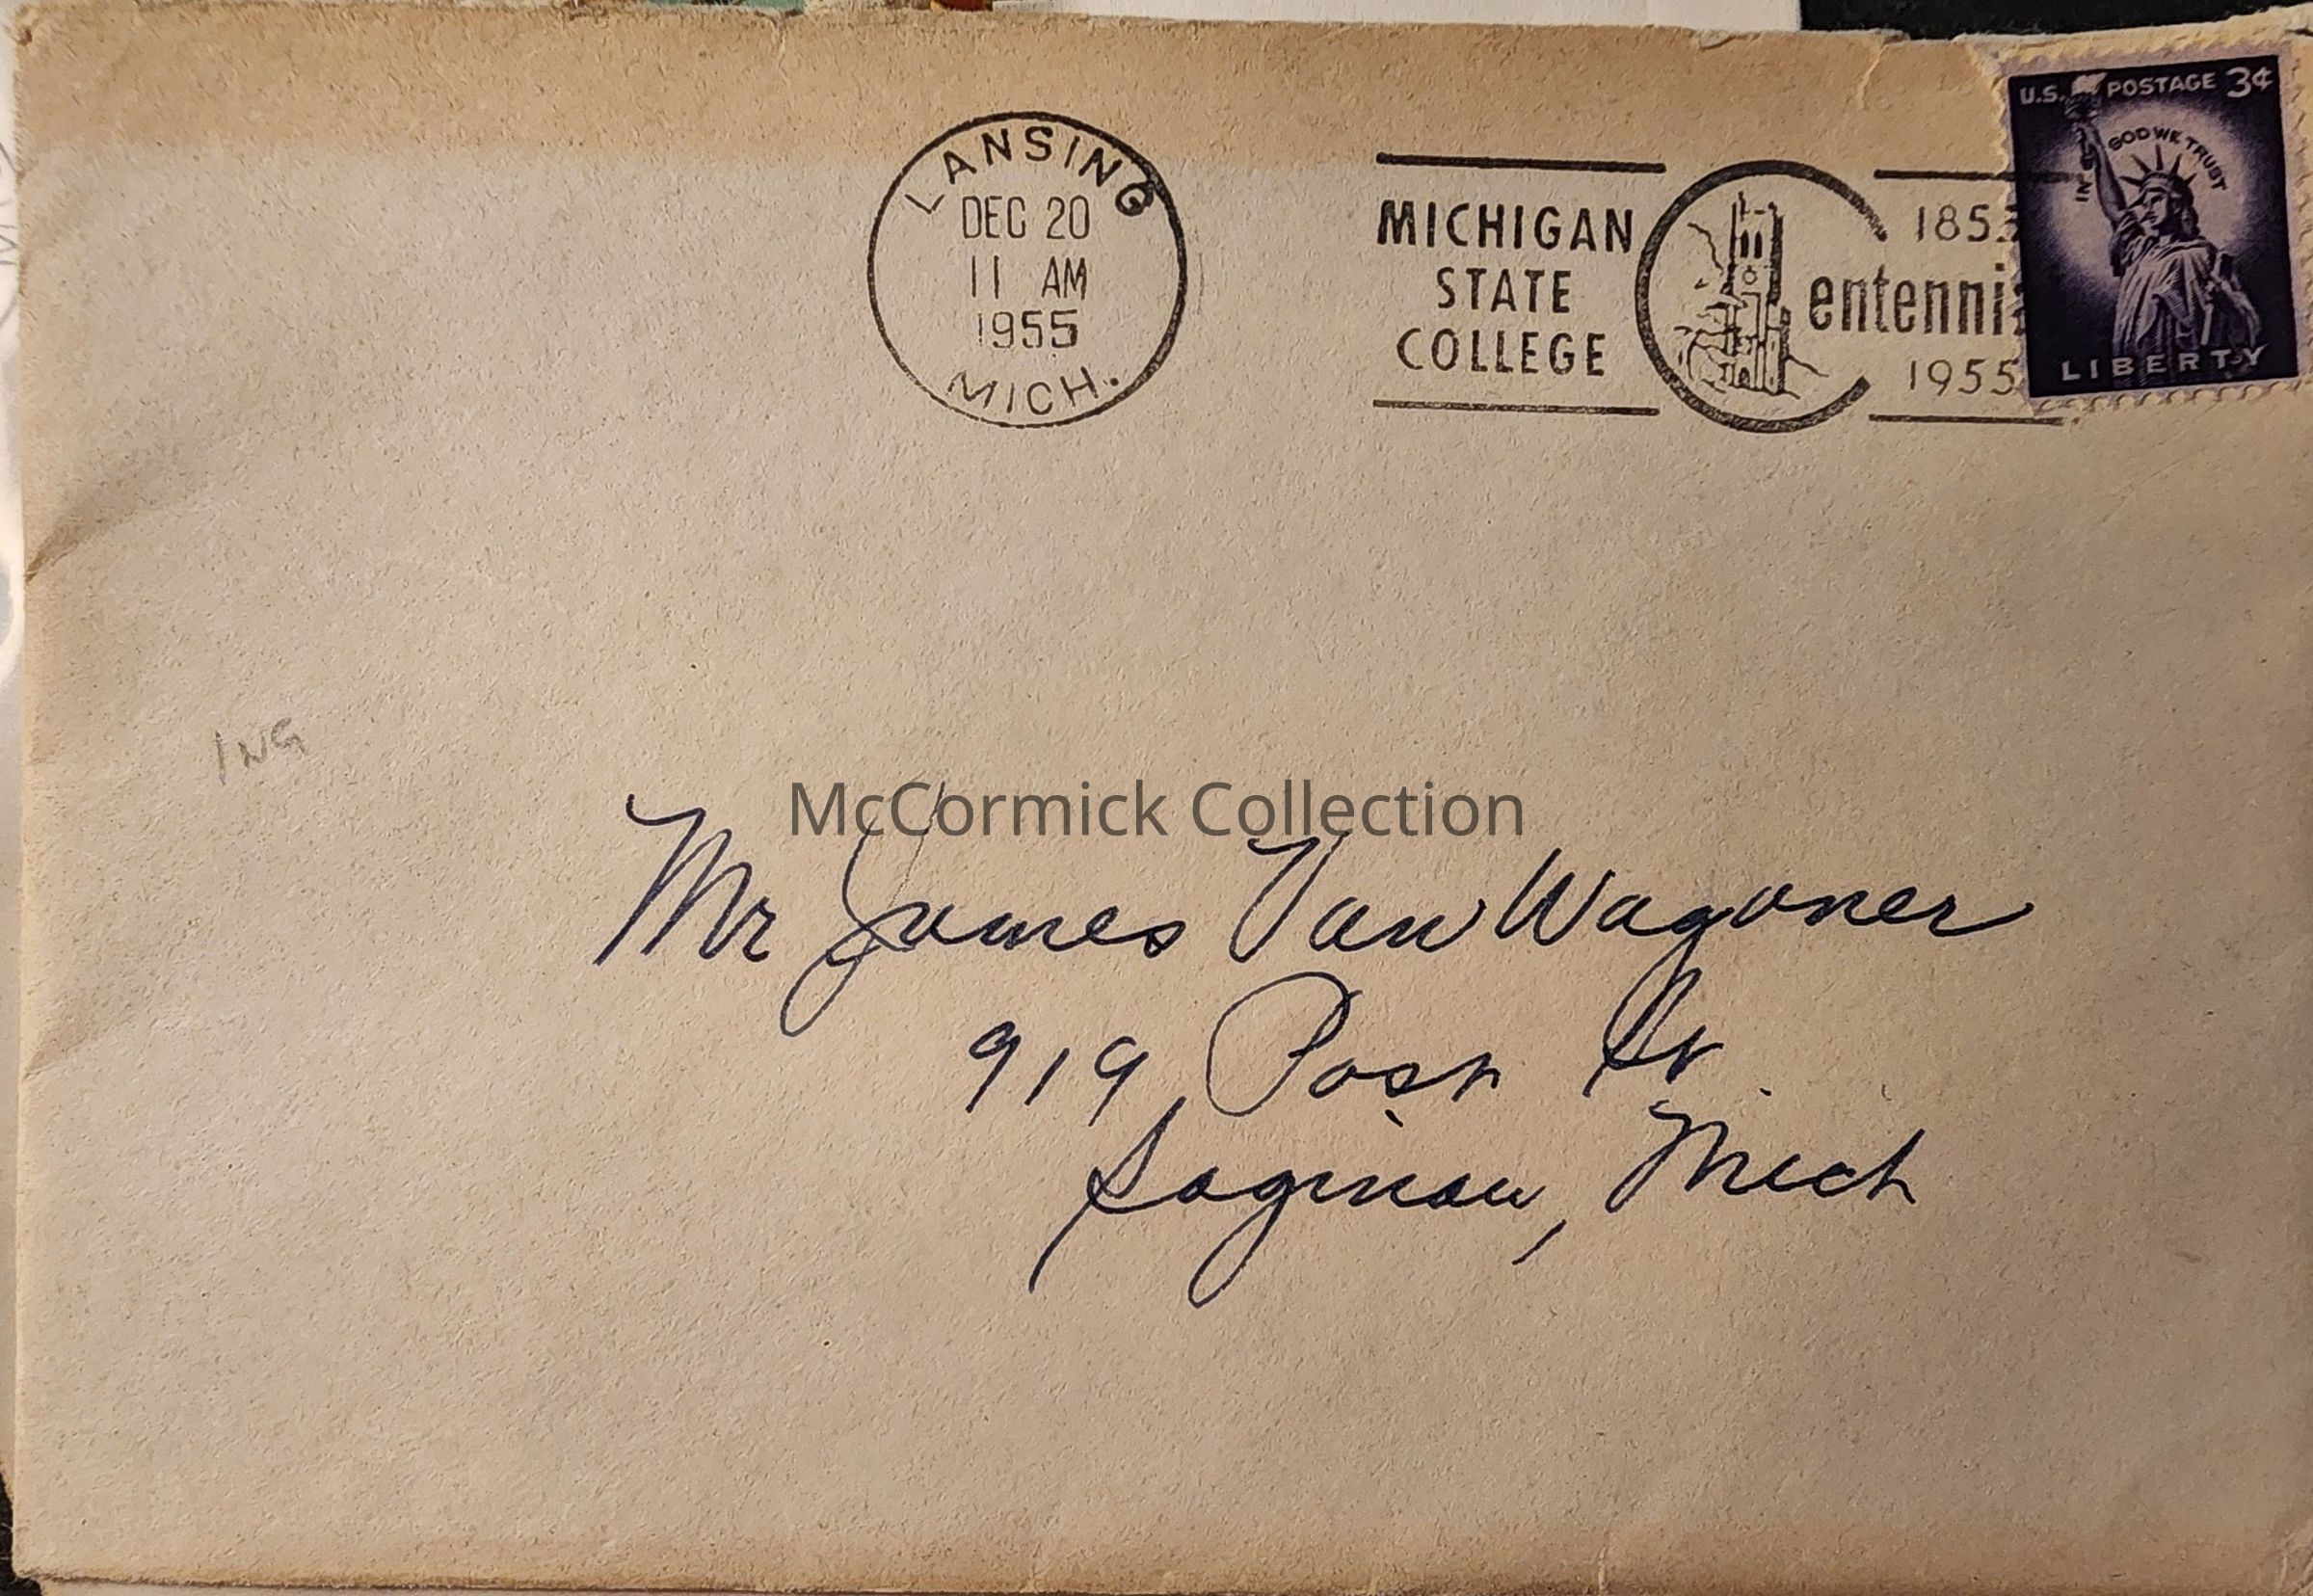 LANSING
DEC 20
11 AM
1955
MICH.
MICHIGAN
STATE
COLLEGE
185
entenni
1955
U.S. POSTAGE 3¢
IN GOD WE TRUST
LIBERTY
ING
McCormick Collection
Mr James Van Wagoner
919 Post St
Saginaw, Mich